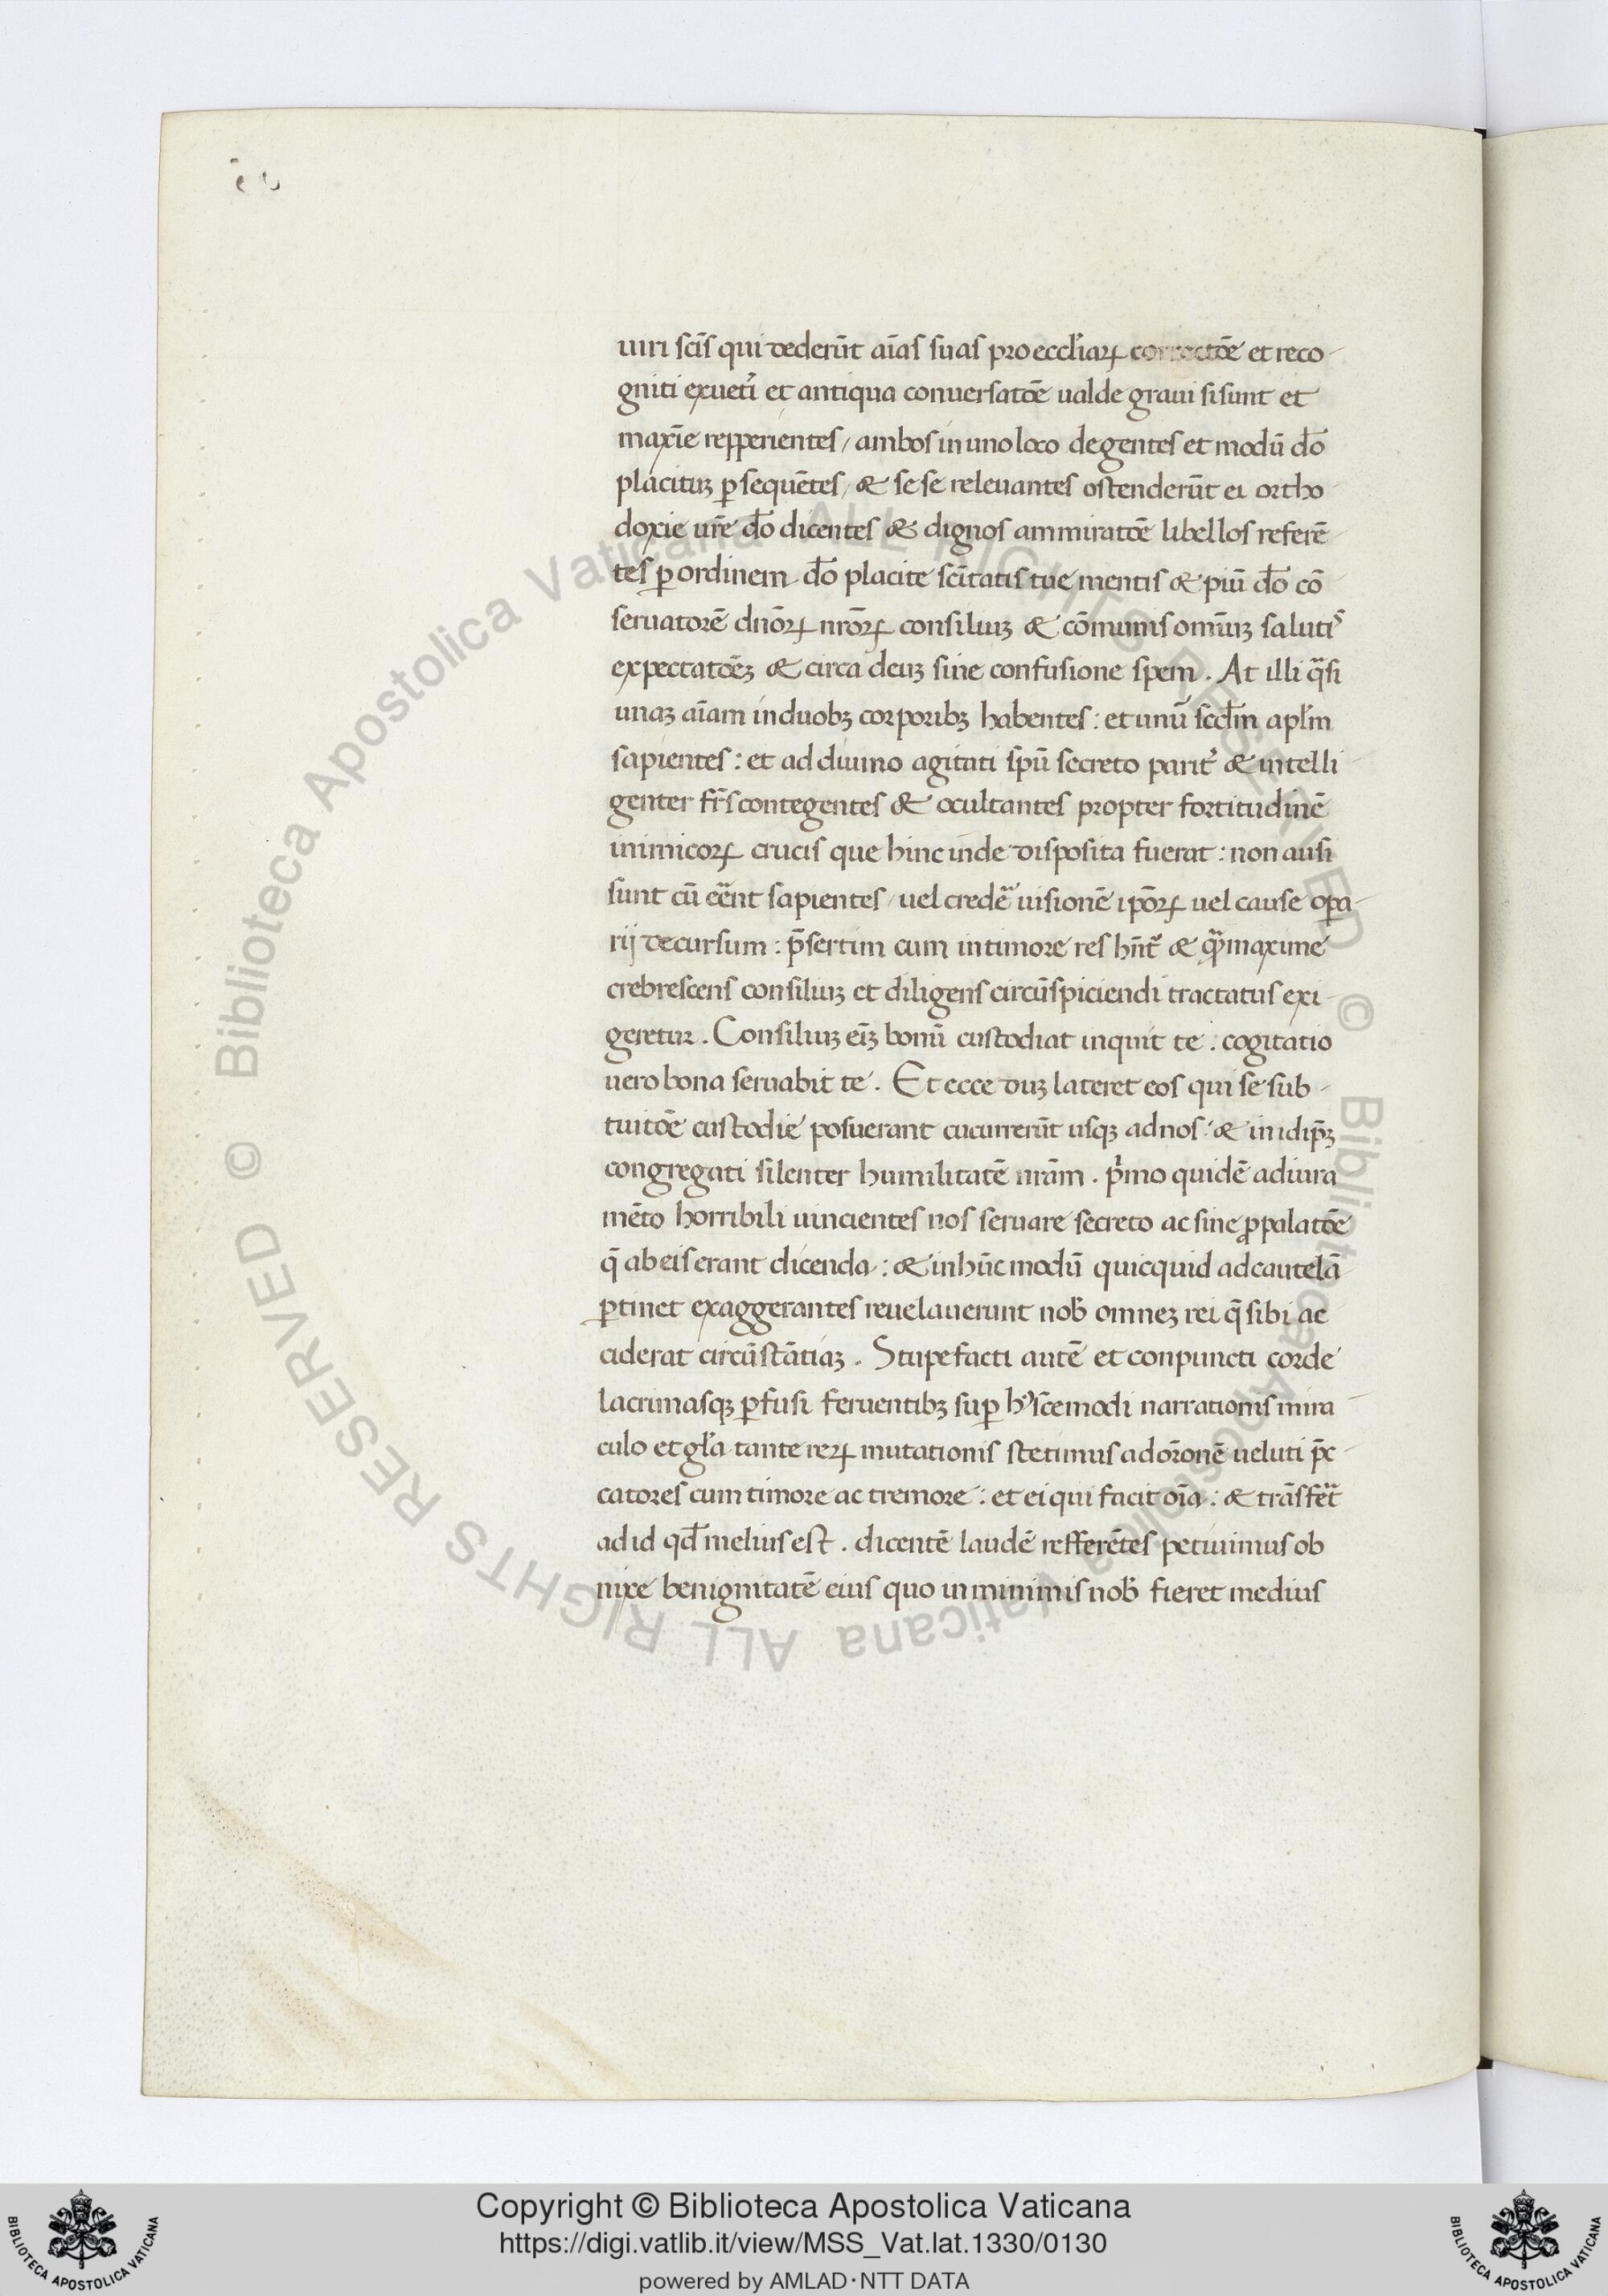 uiri scīs qui dederūt aīas suas pro eccl̄iaꝝ correctōe et reco-
gniti ex uetī et antiqua conuersatōe ualde grauisi sunt et
maxīe repperientes / ambos in uno loco degentes et modū d̄o
placituꝫ ꝑsequētes / & se se releuantes ostenderūt ei ortho
doxie ur̄e d̄o dicentes & dignos ammiratōe libellos referē-
tes ꝑ ordinem d̄o placite scītatis tue mentis & piū d̄o cō-
seruatorē dnōꝝ nrōꝝ consiliuꝫ & cōmunis omīuꝫ saluti᷒
expectatōeꝫ & circa deuꝫ sine confusione spem . At illi qᷓsi
unaꝫ aīam in duobꝫ corporibꝫ habentes : et unū scd̄m apl̄m
sapientes : et ad diuino agitati spū secreto parit᷑ & intelli-
genter fr̄s contegentes & ocultantes propter fortitudinē
inimicoꝝ crucis que hinc inde disposita fuerat : non ausi
sunt cū eēnt sapientes / uel credeᷓ uisionē ipōꝝ uel cause opa-
rij decursum : p̄sertim cum in timore res hn̄t᷑ & qᷓ maxime
crebrescens consiliuꝫ et diligens circūspiciendi tractatus exi-
geretur . Consiliuꝫ eīꝫ bonū custodiat inquit te . cogitatio
uero bona seruabit te . Et ecce duꝫ lateret eos qui se sub-
tuitōe custodie posuerant cucurrerūt usqꝫ ad nos : & in idip̄ꝫ
congregati silenter humilitatē nrām . p̄mo quidē ad iura
mēto horribili uincientes nos seruare secreto ac sine ꝓpalatōe
q̄ ab eis erant dicenda : & in hūc modū quicquid ad cautelā
ꝑtinet exaggerantes reuelauerunt nob̄ omneꝫ rei q̄ sibi ac
ciderat circūstātiaꝫ . Stupefacti autē et conpuncti corde
lacrimasqꝫ ꝑfusi feruentibꝫ suꝑ hꝰscemodi narrationis mira-
culo et gl̄a tante reꝝ mutationis stetimus ad orōonē ueluti p̄c-
catores cum timore ac tremore : et ei qui facit oīa : & trāsfert᷑
ad id qd̄ melius est . dicentē laudē refferētes petiuimus ob
nixe benignitatē eius quo in minimis nob̄ fieret medius
Copyright © Biblioteca Apostolica Vaticana
https://digi.vatlib.it/view/MSS_Vat.lat.1330/0130
powered by AMLAD·NTT DATA
© Biblioteca Apostolica Vaticana ALL RIGHTS RESERVED
© Biblioteca Apostolica Vaticana ALL RIGHTS RESERVED
BIBLIOTECA APOSTOLICA VATICANA
BIBLIOTECA APOSTOLICA VATICANA